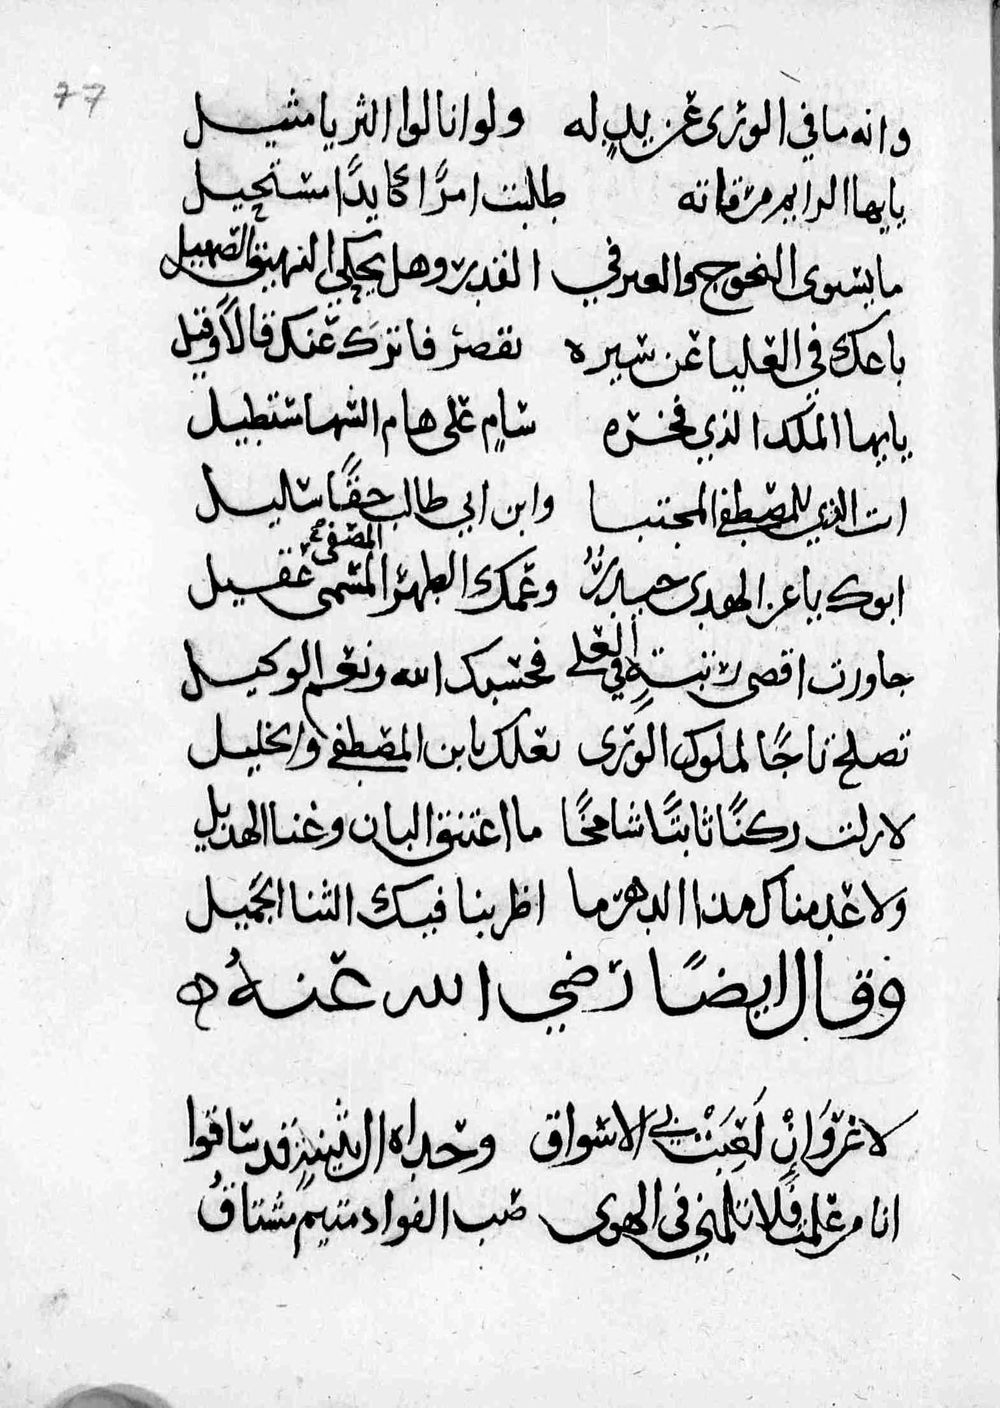 77
وانه ما في الورى عن يد له ولو انالوا الثريا مثيل
يايها الرايم مرقاته طلبت امرًا كايدًا مستحيل
ما يستوى النحوج والعبر في القدر وهل يحكي النهيق الصهيل
باعك في العليا عن سيره نقصر فاترك عنك قالا وقيل
يايها الملك الذي فخره سامٍ على هام السها ستطيل
انت الذي للمصطفى المجتبا وابن ابي طالب حقًا سليل
ابوك ياعز الهدى حيدرٌ وعمك الطهر المسمى عقيل
المصفى
جاورت اقصى رتبةٍ في العلى فحسبك الله ونعم الوكيل
تصلح تاجًا لملوك الورى نعلك يابن المصطفى والخليل
لازلت ركنًا ثابتًا شامخًا ما اعتنق البان وغنا الهديل
ولا عدمناك مدا الدهر ما اطربنا فيك الثنا الجميل
وقال ايضًا رضي الله عنه
لا غرو ان لعبت بي الاشواق وحداه الثنية قد ساقوا
انا من علمت فلا تلمني في الهوى صب الفواد متيم مشتاق